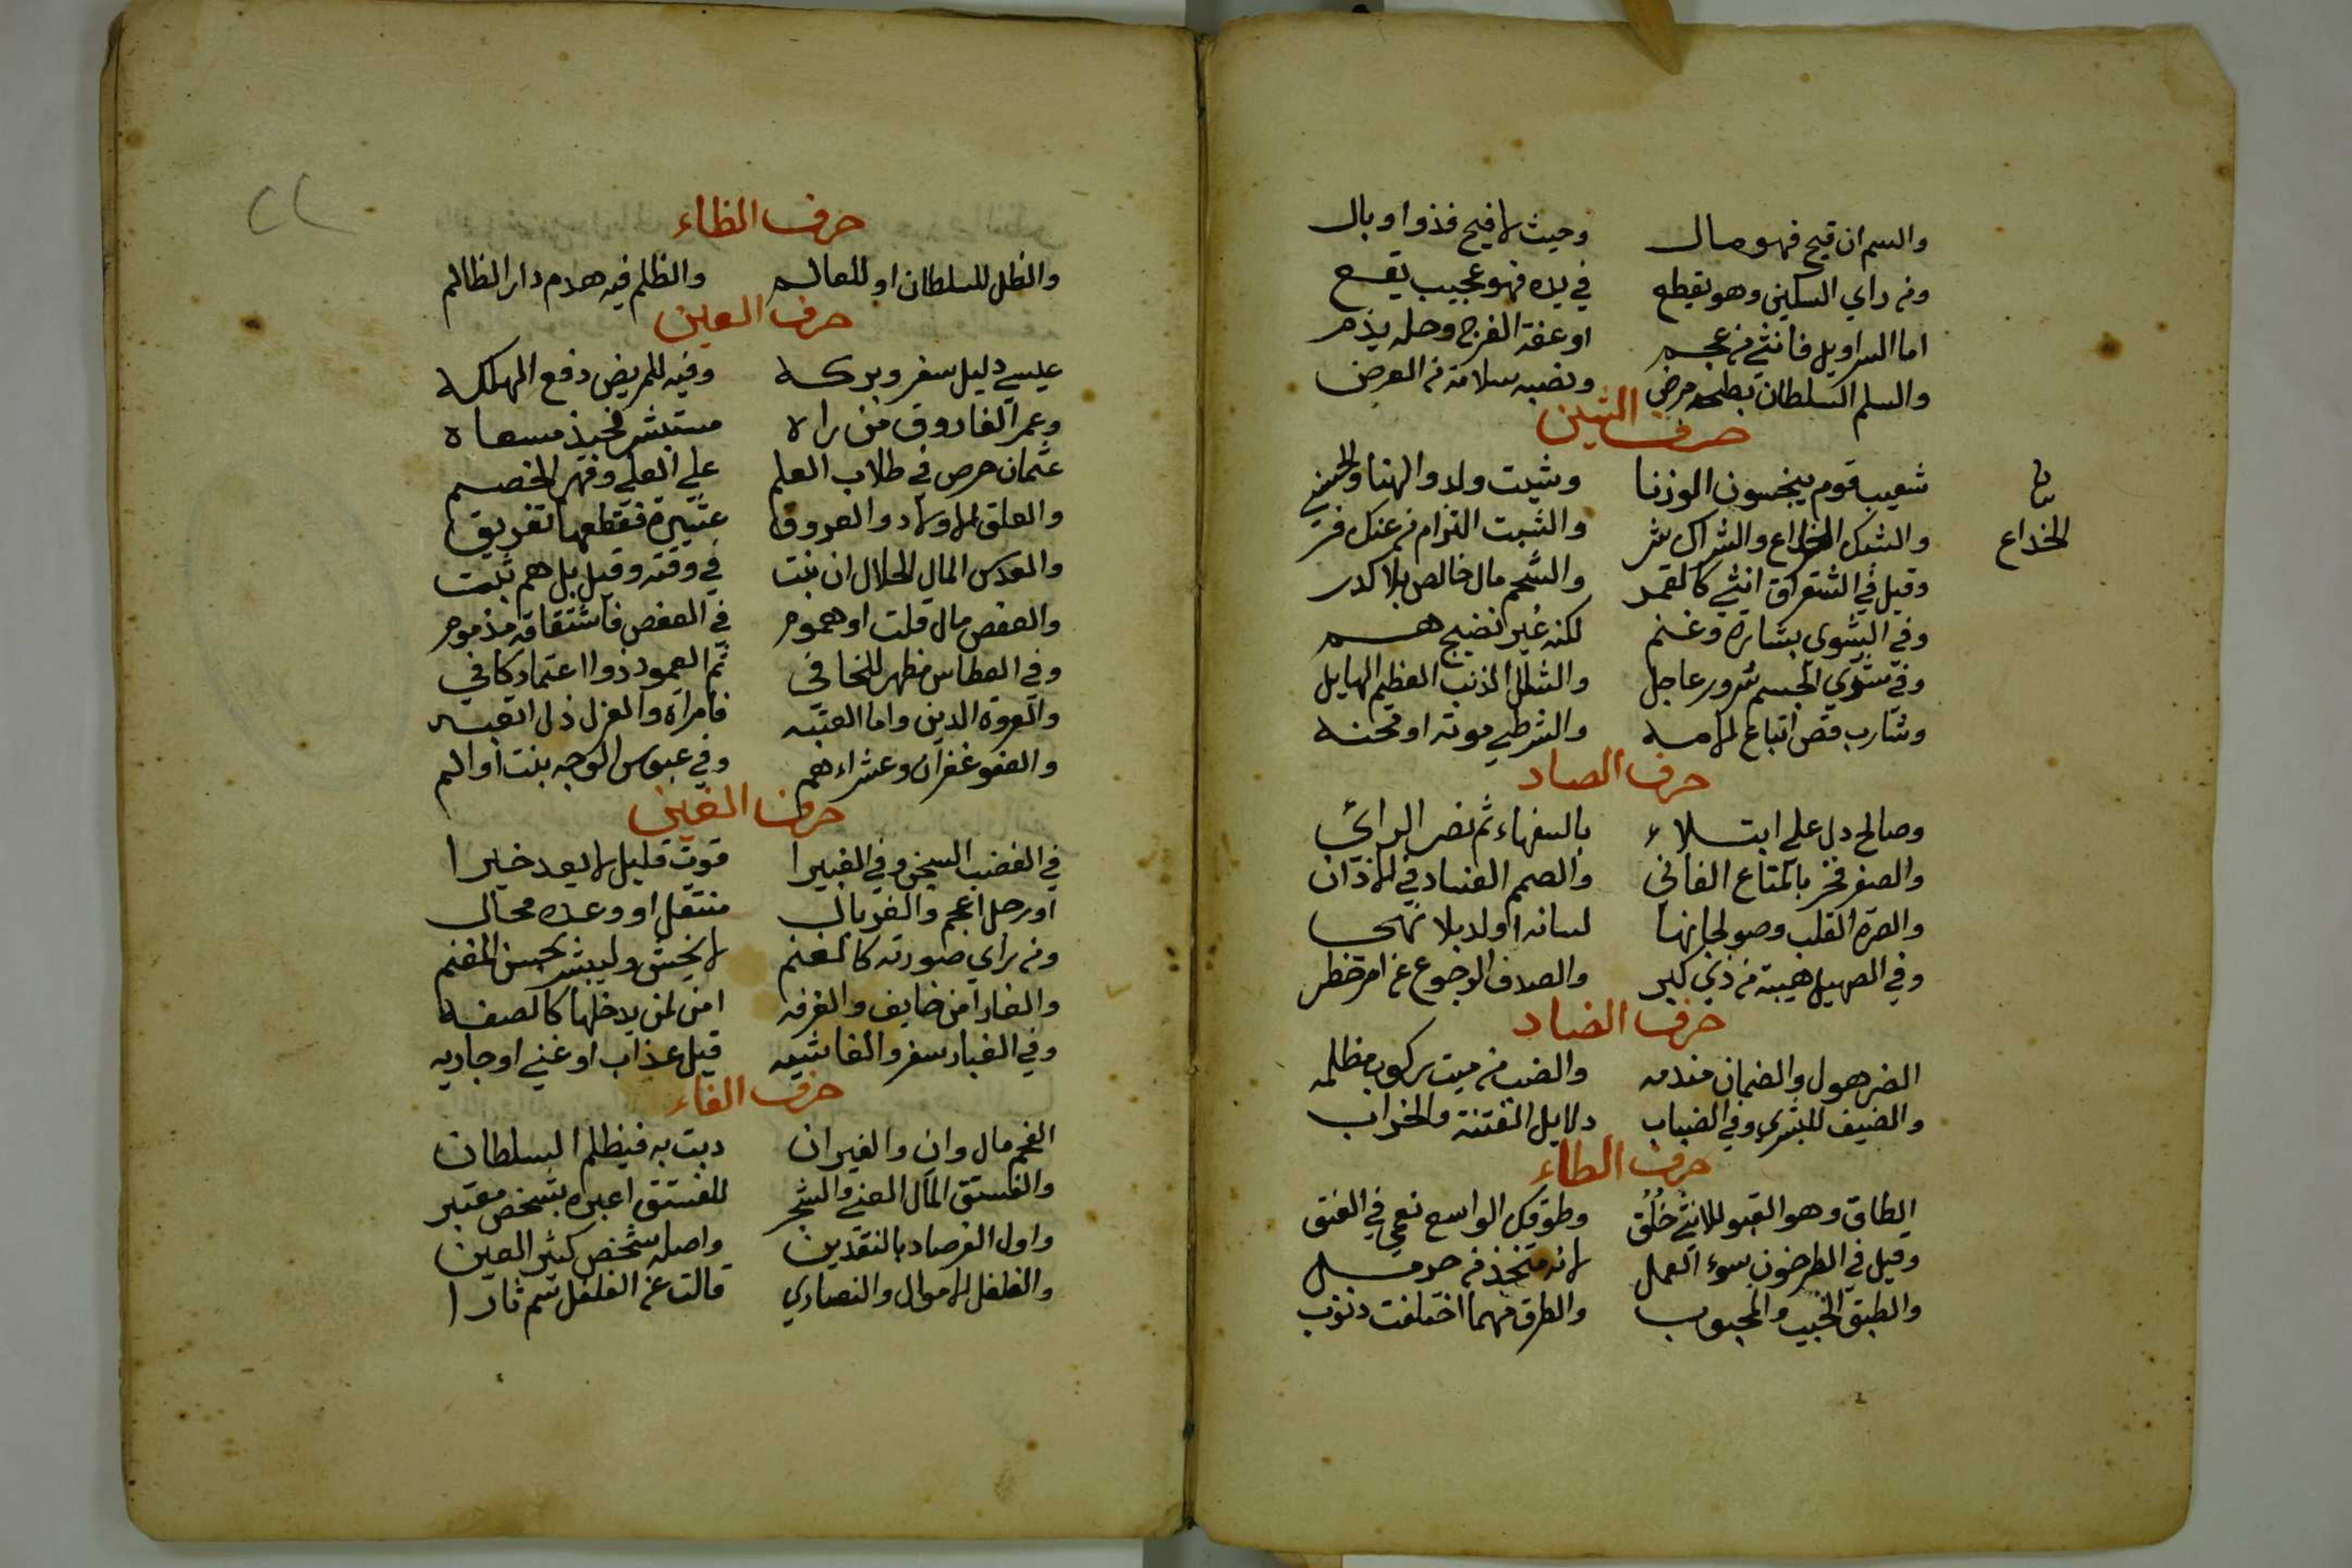 والسم ان قيح فهو مال وحيث لا قيح فذوا وبال
ومن راي السكين وهو يقطع في يده فهو عجيب يقع
اما السراويل فانثي من عجم او عفة الفرج وحله يذم
والسلم السلطان بطحه مرض ونصبه سلامة من العرض
حرف الشين
شعيب قوم يبخسون الوزنا وشيت ولد والهنا والحسني
والشبك الخداع والشراك شر والشبت التزام من عنك فر
بيان
الخداع
وقيل في الشقراق انثي كالقمر والشحم مال خالص بلا كدر
وفي الشوي بشارة وغنم لكنه غير النضيج هم
وفي شوي الجسم شرور عاجل والشلل الذنب العظيم الهايل
وشارب قص اتباع لامه والشرطي موته او محنه
حرف الصاد
وصالح دل علي ابتلاء بالسفهاء ثم نصر الرائي
والصفر فخر بالمتاع الفاني والصمم الفساد في الاذان
والصرة القلب وصولجانها لسانه او ولد بلا نهي
وفي الصهيل هيبة من ذي كبر والصداف الرجوع عن امر خطر
حرف الضاد
الضر هول والضمان مندمه والضب من ميت ركوب مظلمه
والضيف للبشري وفي الضباب دلايل الفتنة والخراب
حرف الطاء
الطاق وهو القبو للانثي خلق وطوقك الواسع نعمي في العنق
وقيل في الطرخون سوء العمل لانه متخذ من حرمل
والطبق الحبيب والمحبوب والطرق مهما اختلفت ذنوب
حرف الظاء
والظل للسلطان او للعالم والظلم فيه هدم دار الظالم
حرف العين
عيسي دليل سفر وبركه وفيه للمريض دفع المهلكه
وعمر الفاروق من راه مستبشر فحبذ مسعاه
عثمان حرص في طلاب العلم علي العلي وقهر الخصم
والعلق الاولاد والعروق عشيرة فقطعها تفريق
والعدس المال الحلال ان نبت في وقته وقيل بل هم ثبت
والعفص مال قلت او هموم في العفص فاشتقاقه مذموم
وفي العطاس مظهر للخافي ثم العمود ذوا اعتماد كافي
والعروة الدين واما العتبه فامراة والعزل ذل العتبه
والعفو غفران وعشراء هم وفي عبوس الوجه بنت او الم
حرف الغين
في الغضب السجن وفي الغبيرا قوت قليل لا يعد خيرا
او رجل اعجم والغربال منتقل او وعده محال
ومن راي صورته كالغنم لا يخش وليبشر بحسن المغنم
والغار امن خايف والغرفه امن لمن يدخلها كالصفه
وفي الغبار سفر والغاشيه قيل عذاب او غني او جاريه
حرف الفاء
الفحم مال وان والفيران دبت به فيظلم السلطان
والفستق المال الهني والشجر للفستق اعبره بشخص معتبر
واول الفرصاد بالنقدين واصله شخص كثير العين
والفلفل الاموال والنصاري قالت عن الفلفل سم ثارا